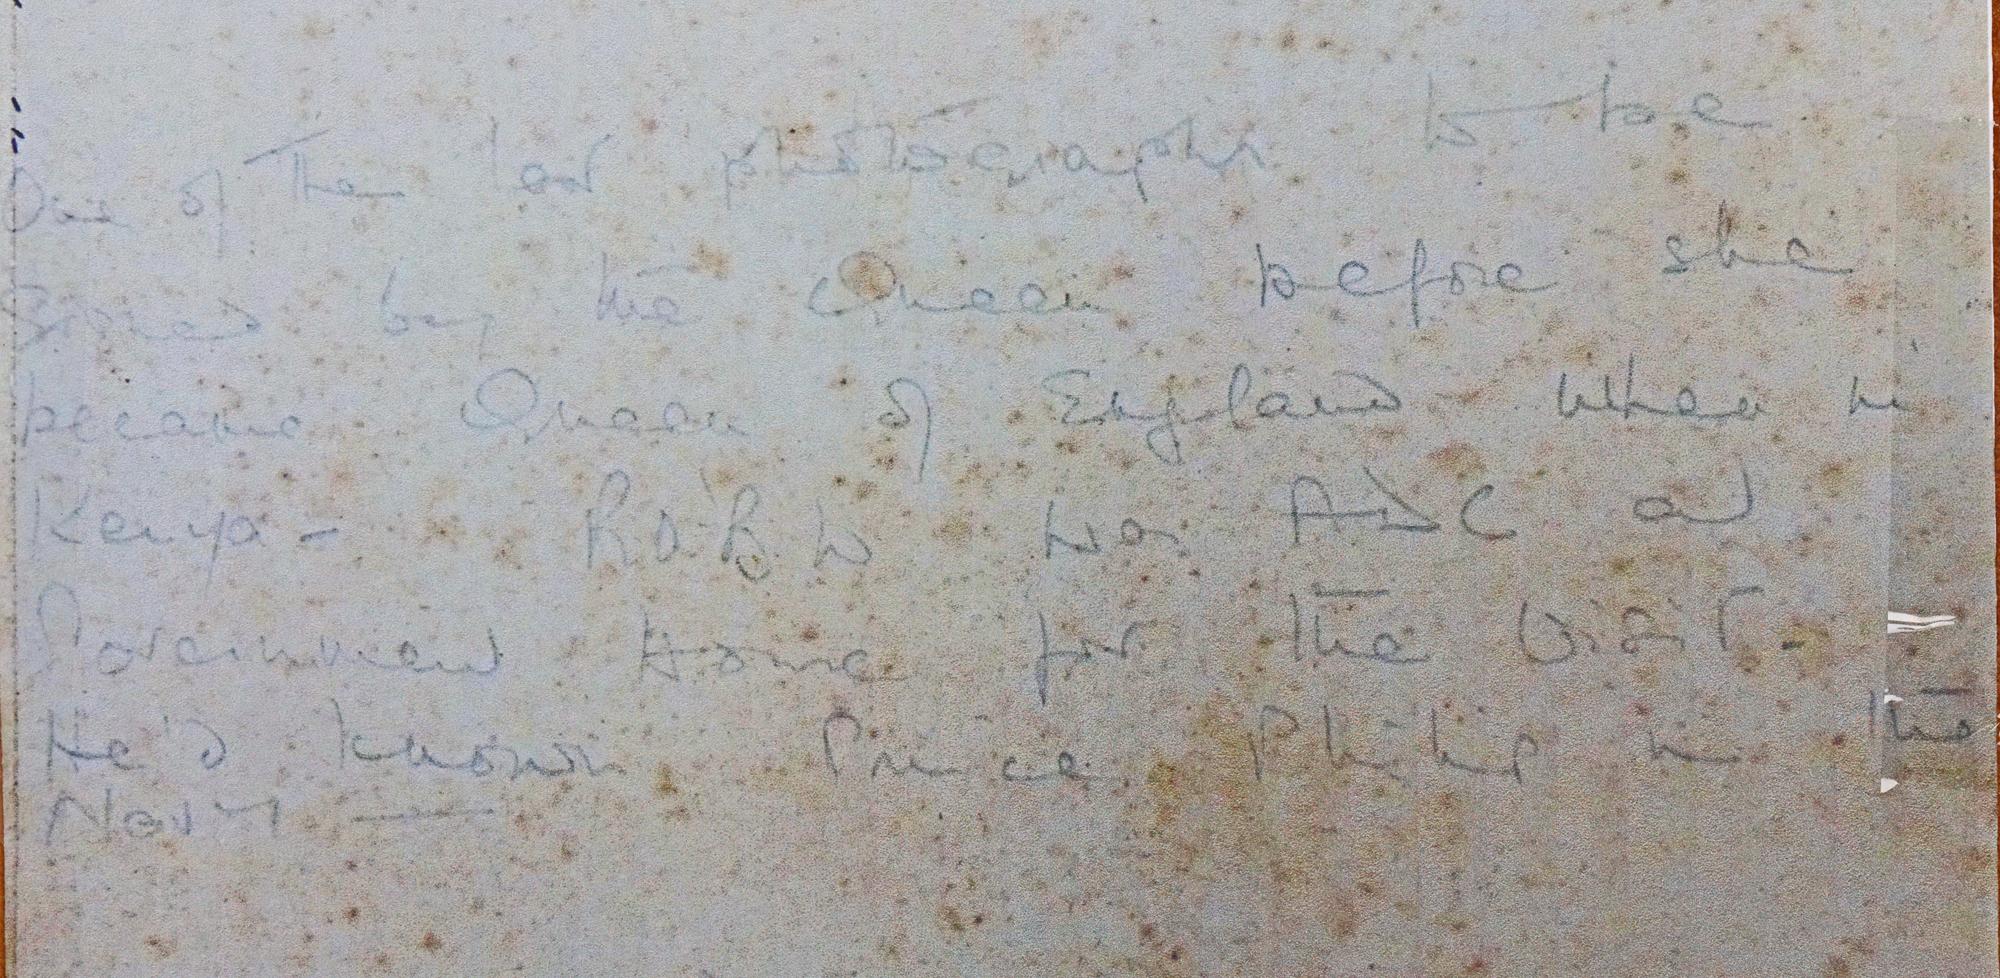 One of the last photographs to be
signed by the Queen before she
became Queen of England when in
Kenya - R.D.B.W was ADC at
Government House for the visit -
He'd known Prince Philip in the
Navy —